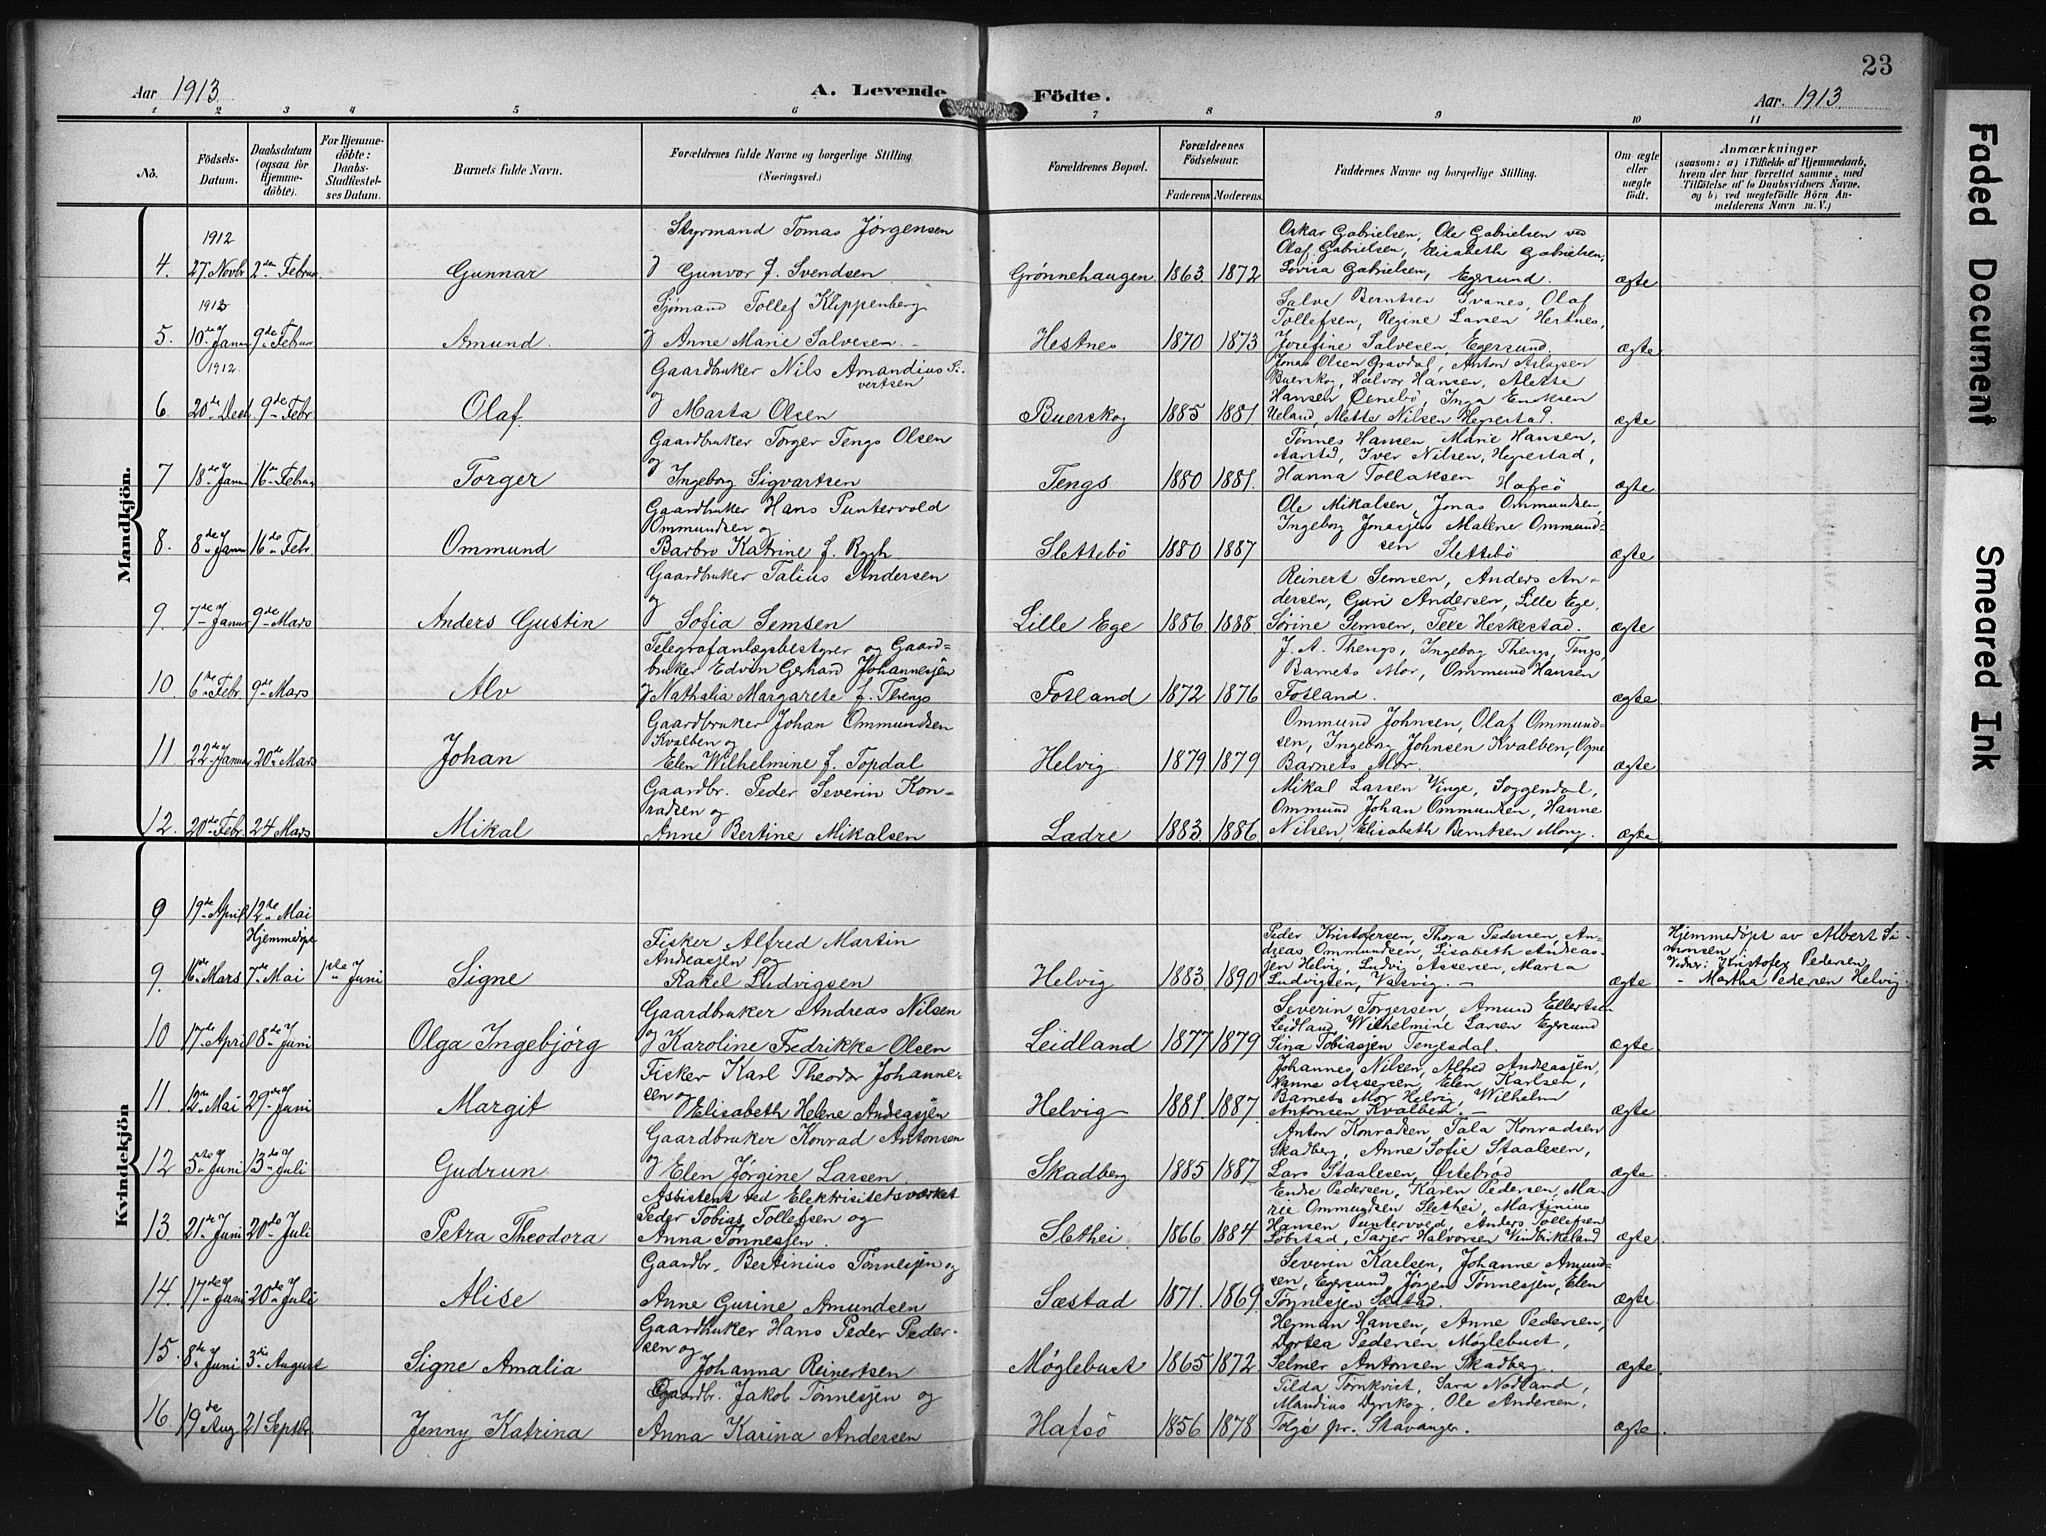 23
Aar 1913
A. Levende
Födte.
Aar. 1913
1 2 3 4 5 6 7 8 9 10 11
No.
Födsels-
Datum.
Daabsdatum
(ogsaa for
Hjemme-
döbte).
For Hjemme-
döbte:
Daabs-
Stadfæstel-
ses Datum.
Barnets fulde Navn.
Forældrenes fulde Navne og borgerlige Stilling.
(Næringsvei.)
Forældrenes Bopæl.
Forældrenes
Födselsaar.
Faderens Moderens
Faddernes Navne og borgerlige Stilling.
Om ægte
eller
uægte
födt.
Anmærkninger
(saasom: a) i Tilfælde af Hjemmedaab,
hvem der har forrettet samme, med
Tilföielse af to Daabsvidners Navne,
og b) ved uægtefödte Börn An-
melderens Navn m. V.)
Mandkjön.
1912
4. 27 Novbr 2den Februar Gunnar
Styrmand Tomas Jørgensen
Gunvor f. Svendsen
Grønnehaugen 1863. 1872
Oskar Gabrielsen, Ole Gabrielsen ved
Olaf Gabrielsen, Elisabeth Gabrielsen,
Lovisa Gabrielsen, Egersund.
ægte
1913
5. 10de Januar 9de Februar Amund.
Sjømand Tollef Klippenberg
Anne Marie Salvesen
Hestnes 1870 1873
Salve Berntsen Svanes, Olaf
Tollefsen, Regine Larsen Hestnes,
Josefine Salvesen, Egersund.
ægte.
1912.
6. 20de Decb. 9de Febr Olaf.
Gaardbruker Nils Amandius Si-
vertsen
og
Marta Olsen
Buerskog 1885 1881
Jonas Olsen Gravdal, Anton Aslagsen
Buerskog, Halvor Hansen, Aletse
Hansen Ørnebö, Inga Eriksen
Ueland, Mette Nilsen Hegrestad.
ægte
7 18de Januar 16de Februar Torger
Gaardbruker Torger Tengs Olsen
og
Ingeborg Sigvartsen
Tengs 1880 1881.
Tønnes Hansen, Marie Hansen,
Aarstad, Iver Nilsen, Hegrestad,
Hanna Tollaksen Hafsö
ægte
8. 8de Januar 16de Febr Ommund
Gaardbruker Hans Puntervold
Ommundsen og
Barbro Katrine f. Rygh
Slettebö 1880 1887
Ole Mikalsen, Jonas Ommundsen,
Ingeborg Jonassen Malene Ommund-
sen Slettebö
ægte
9. 7de Januar 9de Mars Anders Gustin
Gaardbruker Talius Andersen
og
Sofia Semsen
Lille Ege 1886 1888.
Reinert Semsen, Anders An-
dersen, Guri Andersen, Lille Ege,
Sørine Semsen, Heskestad.
ægte
10 6te Febr. 9de Mars Alv
Telegrafanlægsbestyrer og Gaard-
bruker Edvin Gerhard Johannesjen
Nathalia Margarete f. Thengs
Fotland 1872 1876
J. A. Thengs, Ingeborg Thengs, Tengs,
Barnets Mor, Ommund Hansen
Fotland.
ægte.
11. 22de Januar 20de Mars Johan
Gaardbruker Johan Ommundsen
Kvalben og
Elen Wilhelmine f. Topdal
Helvig. 1879 1879
Ommund Johnsen, Olaf Ommund-
sen, Ingeborg Johnsen Kvalben, Ogne
Barnets Mor.
ægte
12. 20de Febr. 24 Mars Mikal
Gaardbr. Peder Severin Kon-
radsen og
Anne Bertine Mikalsen
Lædre 1883. 1886
Mikal Larsen Vinge, Soggendal,
Ommund Johan Ommundsen, Hanne
Nilsen, Elisabeth Berntsen Mong.
ægte
Kvindekjön
9 19de April 12te Mai
Hjemmedøpt
9. 16de Mars 7de Mai 1ste Juni Signe
Fisker Alfred Martin
Andreasjen og
Rakel Ludvigsen
Helvig 1883. 1890
Peder Kristofersen, Thora Pedersen, An-
dreas Ommundsen, Lisabeth Andreas-
jen Helvig, Ludvig Assersen, Marta
Ludvigsen,
ægte
Hjemmedøpt av Albert Si-
monsen.
Vidner: Kristofer Pedersen,
Martha Pedersen Helvig.
10 17de April 8de Juni Olga Ingebjørg
Gaardbruker Andreas Nilsen
og
Karoline Fredrikke Olsen
Leidland 1877 1879
Severin Torgersen, Amund Ellertsen
Leidland, Wilhelmine Larsen Egersund
Sina Tobiasjen Tengesdal.
ægte.
11. 12te Mai 29de Juni Margit
Fisker Karl Theodor Johanne-
sen og
Elisabeth Helene Andreasjen
Helvig 1881. 1887.
Johannes Nilsen, Alfred Andreasjen,
Hanne Assersen, Elen Karlsen,
Barnets Mor Helvig, Wilhelm
Antonsen Kvalben.
ægte
12 5te Juni 13de Juli Gudrun
Gaardbruker Konrad Antonsen
og
Elen Jørgine Larsen.
Skadberg 1885 1887
Anton Konradsen, Tala Konradsen
Skadberg, Anne Sofie Staalesen,
Lars Staalesen, Østebrød
ægte.
13. 21de Juni 20de Juli Petra Theodora
Assistent ved Elektrisitetsværket
Peder Tobias Tollefsen og
Anna Tønnesjen.
Slethei. 1866 1884.
Endre Pedersen, Karen Pedersen, Ma-
rie Ommundsen Slethei, Martinius
Hansen Puntervold, Anders Tollefsen
Løbstad, Tarjer Halvorsen Vindbikeland
ægte.
14. 17de Juni 20de Juli Alise
Gaardbr. Bertinius Tønnesjen og
Anne Gurine Amundsen
Sæstad 1871. 1869
Severin Karlsen, Johanne Amund-
sen, Egersund, Jørgen Tønnesjen, Elen
Tønnesjen Sæstad.
ægte.
15. 8de Juni 3die August Signe Amalia
Gaardbruker Hans Peder Peder-
sen og
Johanna Reinertsen
Møglebust 1865 1872
Herman Hansen, Anne Pedersen,
Dortea Pedersen Møglebust,
Selmer Antonsen Skadberg.
ægte.
16. 19de Aug. 21 Septbr. Jenny Katrina
Gaardbr. Jakob Tønnesjen og
Anna Karina Andersen
Hafsö 1856 1878
Tilda Tørnkvist, Sara Nodland,
Maudius Dyrskog, Ole Andersen,
Tolgö pr. Stavanger.
ægte.
Faded Document
Smeared Ink